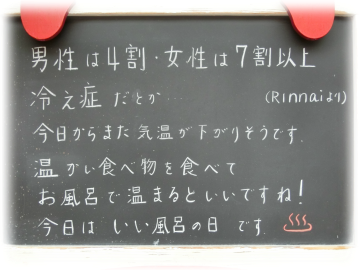 男性は4割・女性は7割以上
冷え症だとか… (Rinnaiより)
今日からまた気温が下がりそうです。
温かい食べ物を食べて
お風呂で温まるといいですね!
今日は いい風呂の日 です。♨